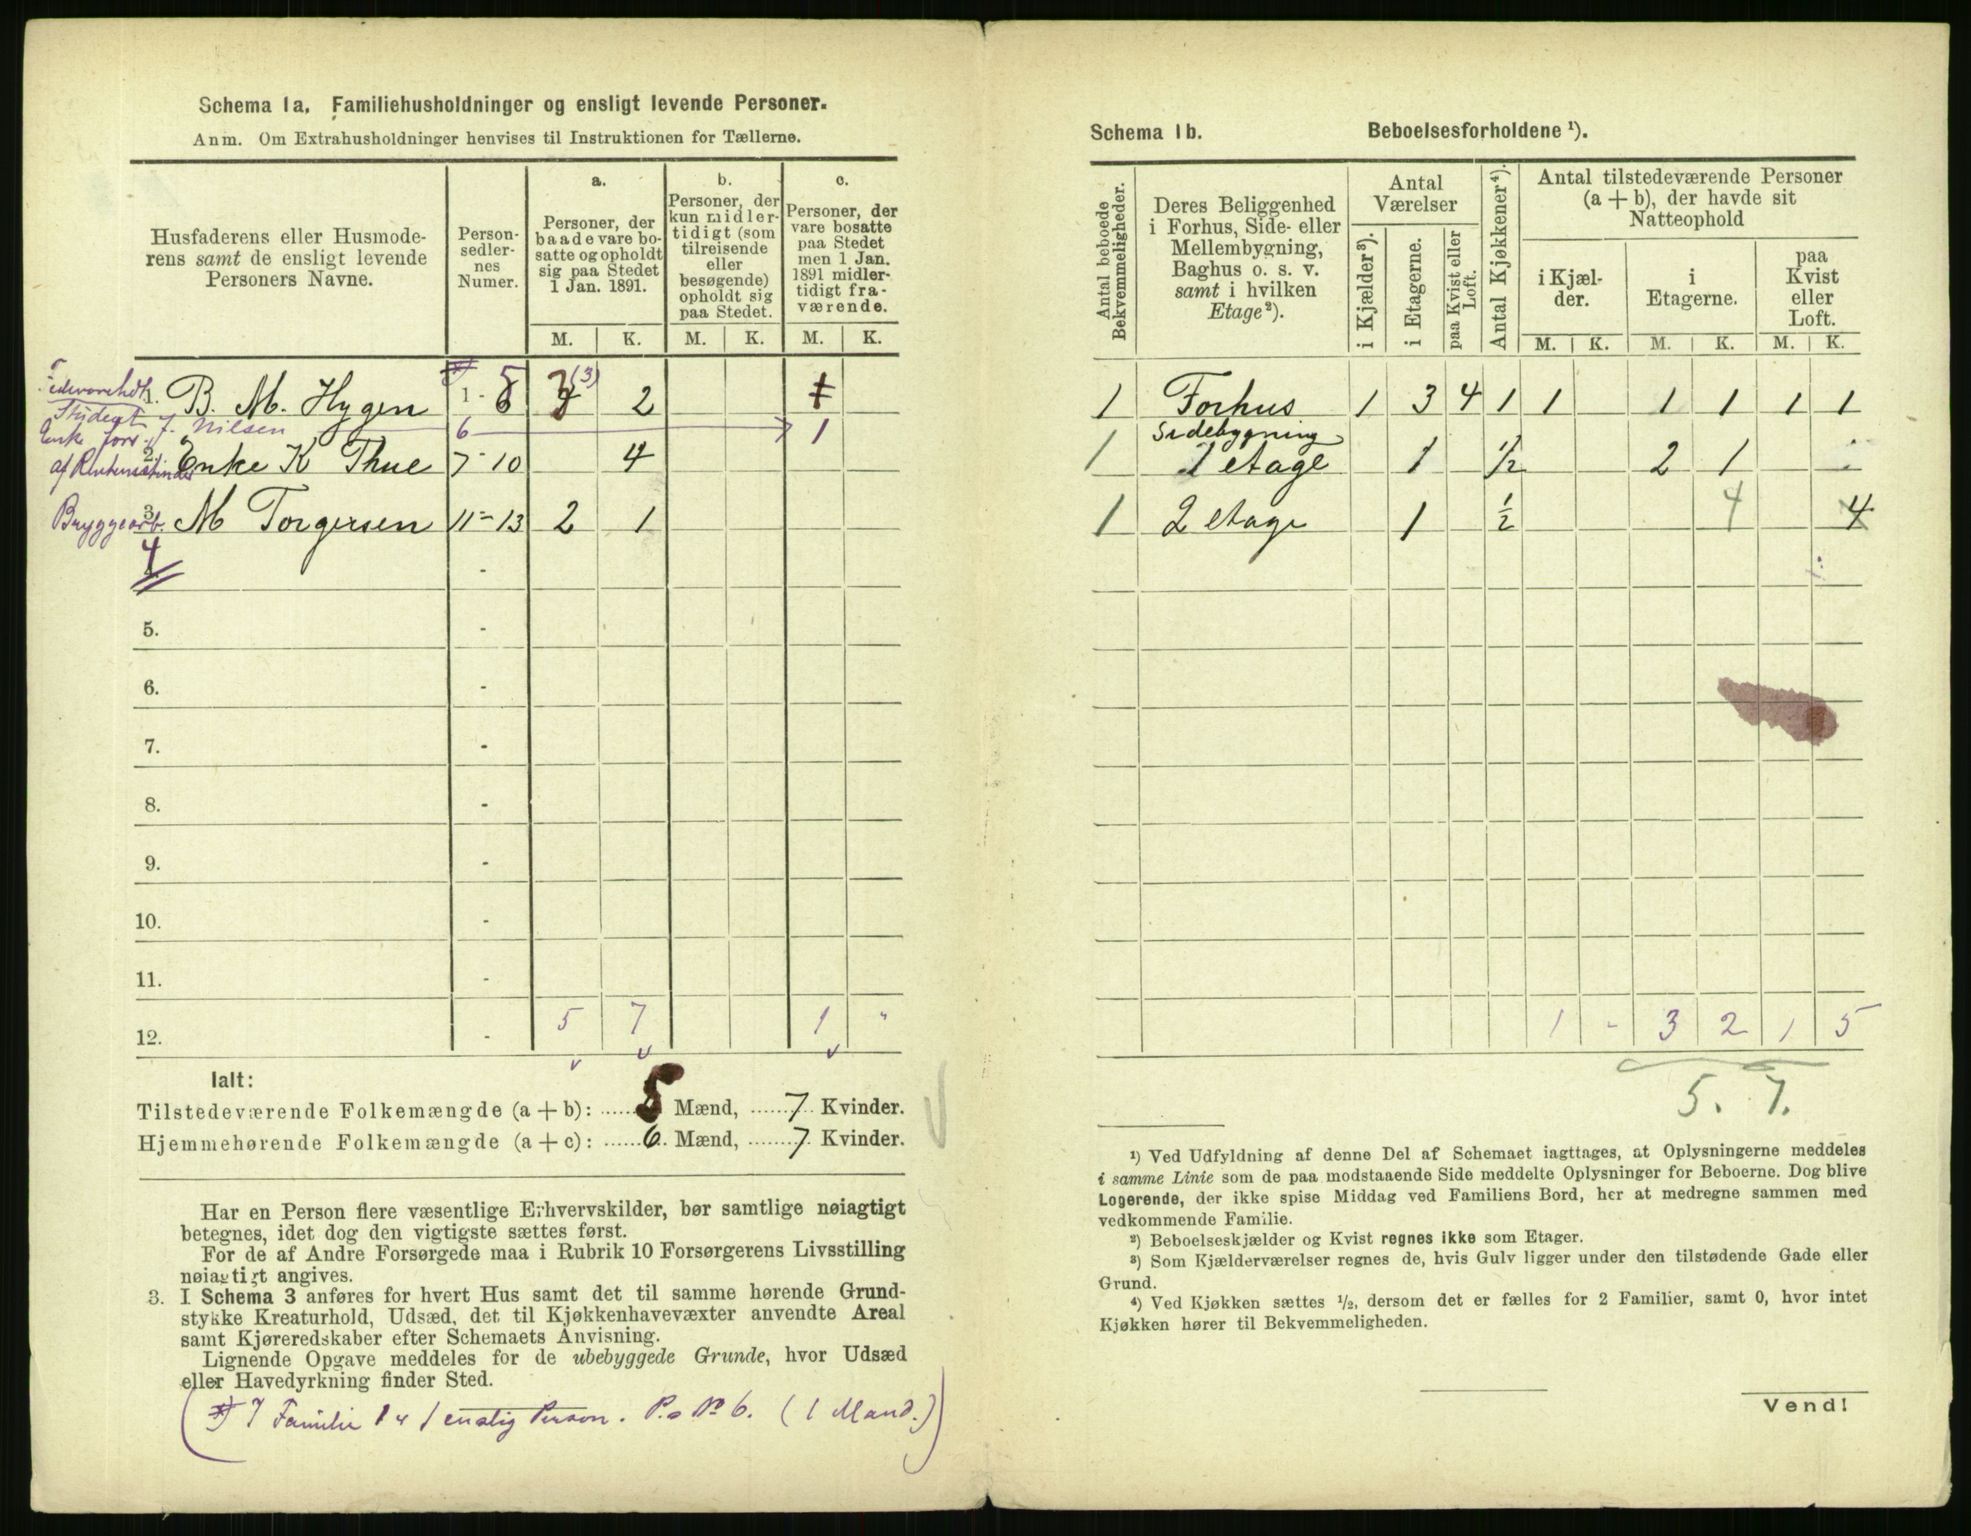 Schema 1a. Familiehusholdninger og ensligt levende Personer.
Anm. Om Extrahusholdninger henvises til Instruktionen for Tællerne.
Husfaderens eller Husmode-
rens samt de ensligt levende
Personers Navne.
Person-
sedler-
nes
Numer.
a.
Personer, der
baade vare bo-
satte og opholdt
sig paa Stedet
1 Jan. 1891.
b.
Personer, der
kun midler-
tidigt (som
tilreisende
eller
besøgende)
opholdt sig
paa Stedet.
c.
Personer, der
vare bosatte
paa Stedet
men 1 Jan.
1891 midler-
tidigt fra-
værende.
M. K. M. K. M. K.
1. B. M. Hygen 1 - 5 (3) 2 1
Student J. Nilsen 6 1
Enke
2. Enke K Thue 7 - 10 4
Bryggearb. 3. M Torgersen 11 - 13 2 1
4 -
5. -
6. -
7. -
8. -
9. -
10. -
11. -
5 7 1 "
12. -
Ialt:
Tilstedeværende Folkemængde (a + b): 5 Mænd, 7 Kvinder.
Hjemmehørende Folkemængde (a + c): 6 Mænd, 7 Kvinder.
Har en Person flere væsentlige Erhvervskilder, bør samtlige nøiagtigt
betegnes, idet dog den vigtigste sættes først.
For de af Andre Forsørgede maa i Rubrik 10 Forsørgerens Livsstilling
nøiagtigt angives.
3. I Schema 3 anføres for hvert Hus samt det til samme hørende Grund-
stykke Kreaturhold, Udsæd, det til Kjøkkenhavevæxter anvendte Areal
samt Kjøreredskaber efter Schemaets Anvisning.
Lignende Opgave meddeles for de ubebyggede Grunde, hvor Udsæd
eller Havedyrkning finder Sted.
Familie 1 enslig Person. P.s No 6. (1 Mand.)
Schema 1b. Beboelsesforholdene ¹).
Antal beboede
Bekvemmeligheder.
Deres Beliggenhed
i Forhus, Side- eller
Mellembygning,
Baghus o. s. v.
samt i hvilken
Etage²).
Antal
Værelser
i Kjælder³).
i Etagerne.
paa Kvist eller
Loft.
Antal Kjøkkener⁴).
Antal tilstedeværende Personer
(a + b), der havde sit
Natteophold
i Kjæl-
der.
i
Etagerne.
paa
Kvist
eller
Loft.
M. K. M. K. M. K.
1 Forhus 1 3 4 1 1 1 1 1 1
Sidebygning
1 1 etage 1 ½ 2 1
1 2 etage 1 ½ 4 4
1 - 3 2 1 5
5. 7.
¹) Ved Udfyldning af denne Del af Schemaet iagttages, at Oplysningerne meddeles
i samme Linie som de paa modstaaende Side meddelte Oplysninger for Beboerne. Dog blive
Logerende, der ikke spise Middag ved Familiens Bord, her at medregne sammen med
vedkommende Familie.
²) Beboelseskjælder og Kvist regnes ikke som Etager.
³) Som Kjælderværelser regnes de, hvis Gulv ligger under den tilstødende Gade eller
Grund.
⁴) Ved Kjøkken sættes ½, dersom det er fælles for 2 Familier, samt 0, hvor intet
Kjøkken hører til Bekvemmeligheden.
Vend!